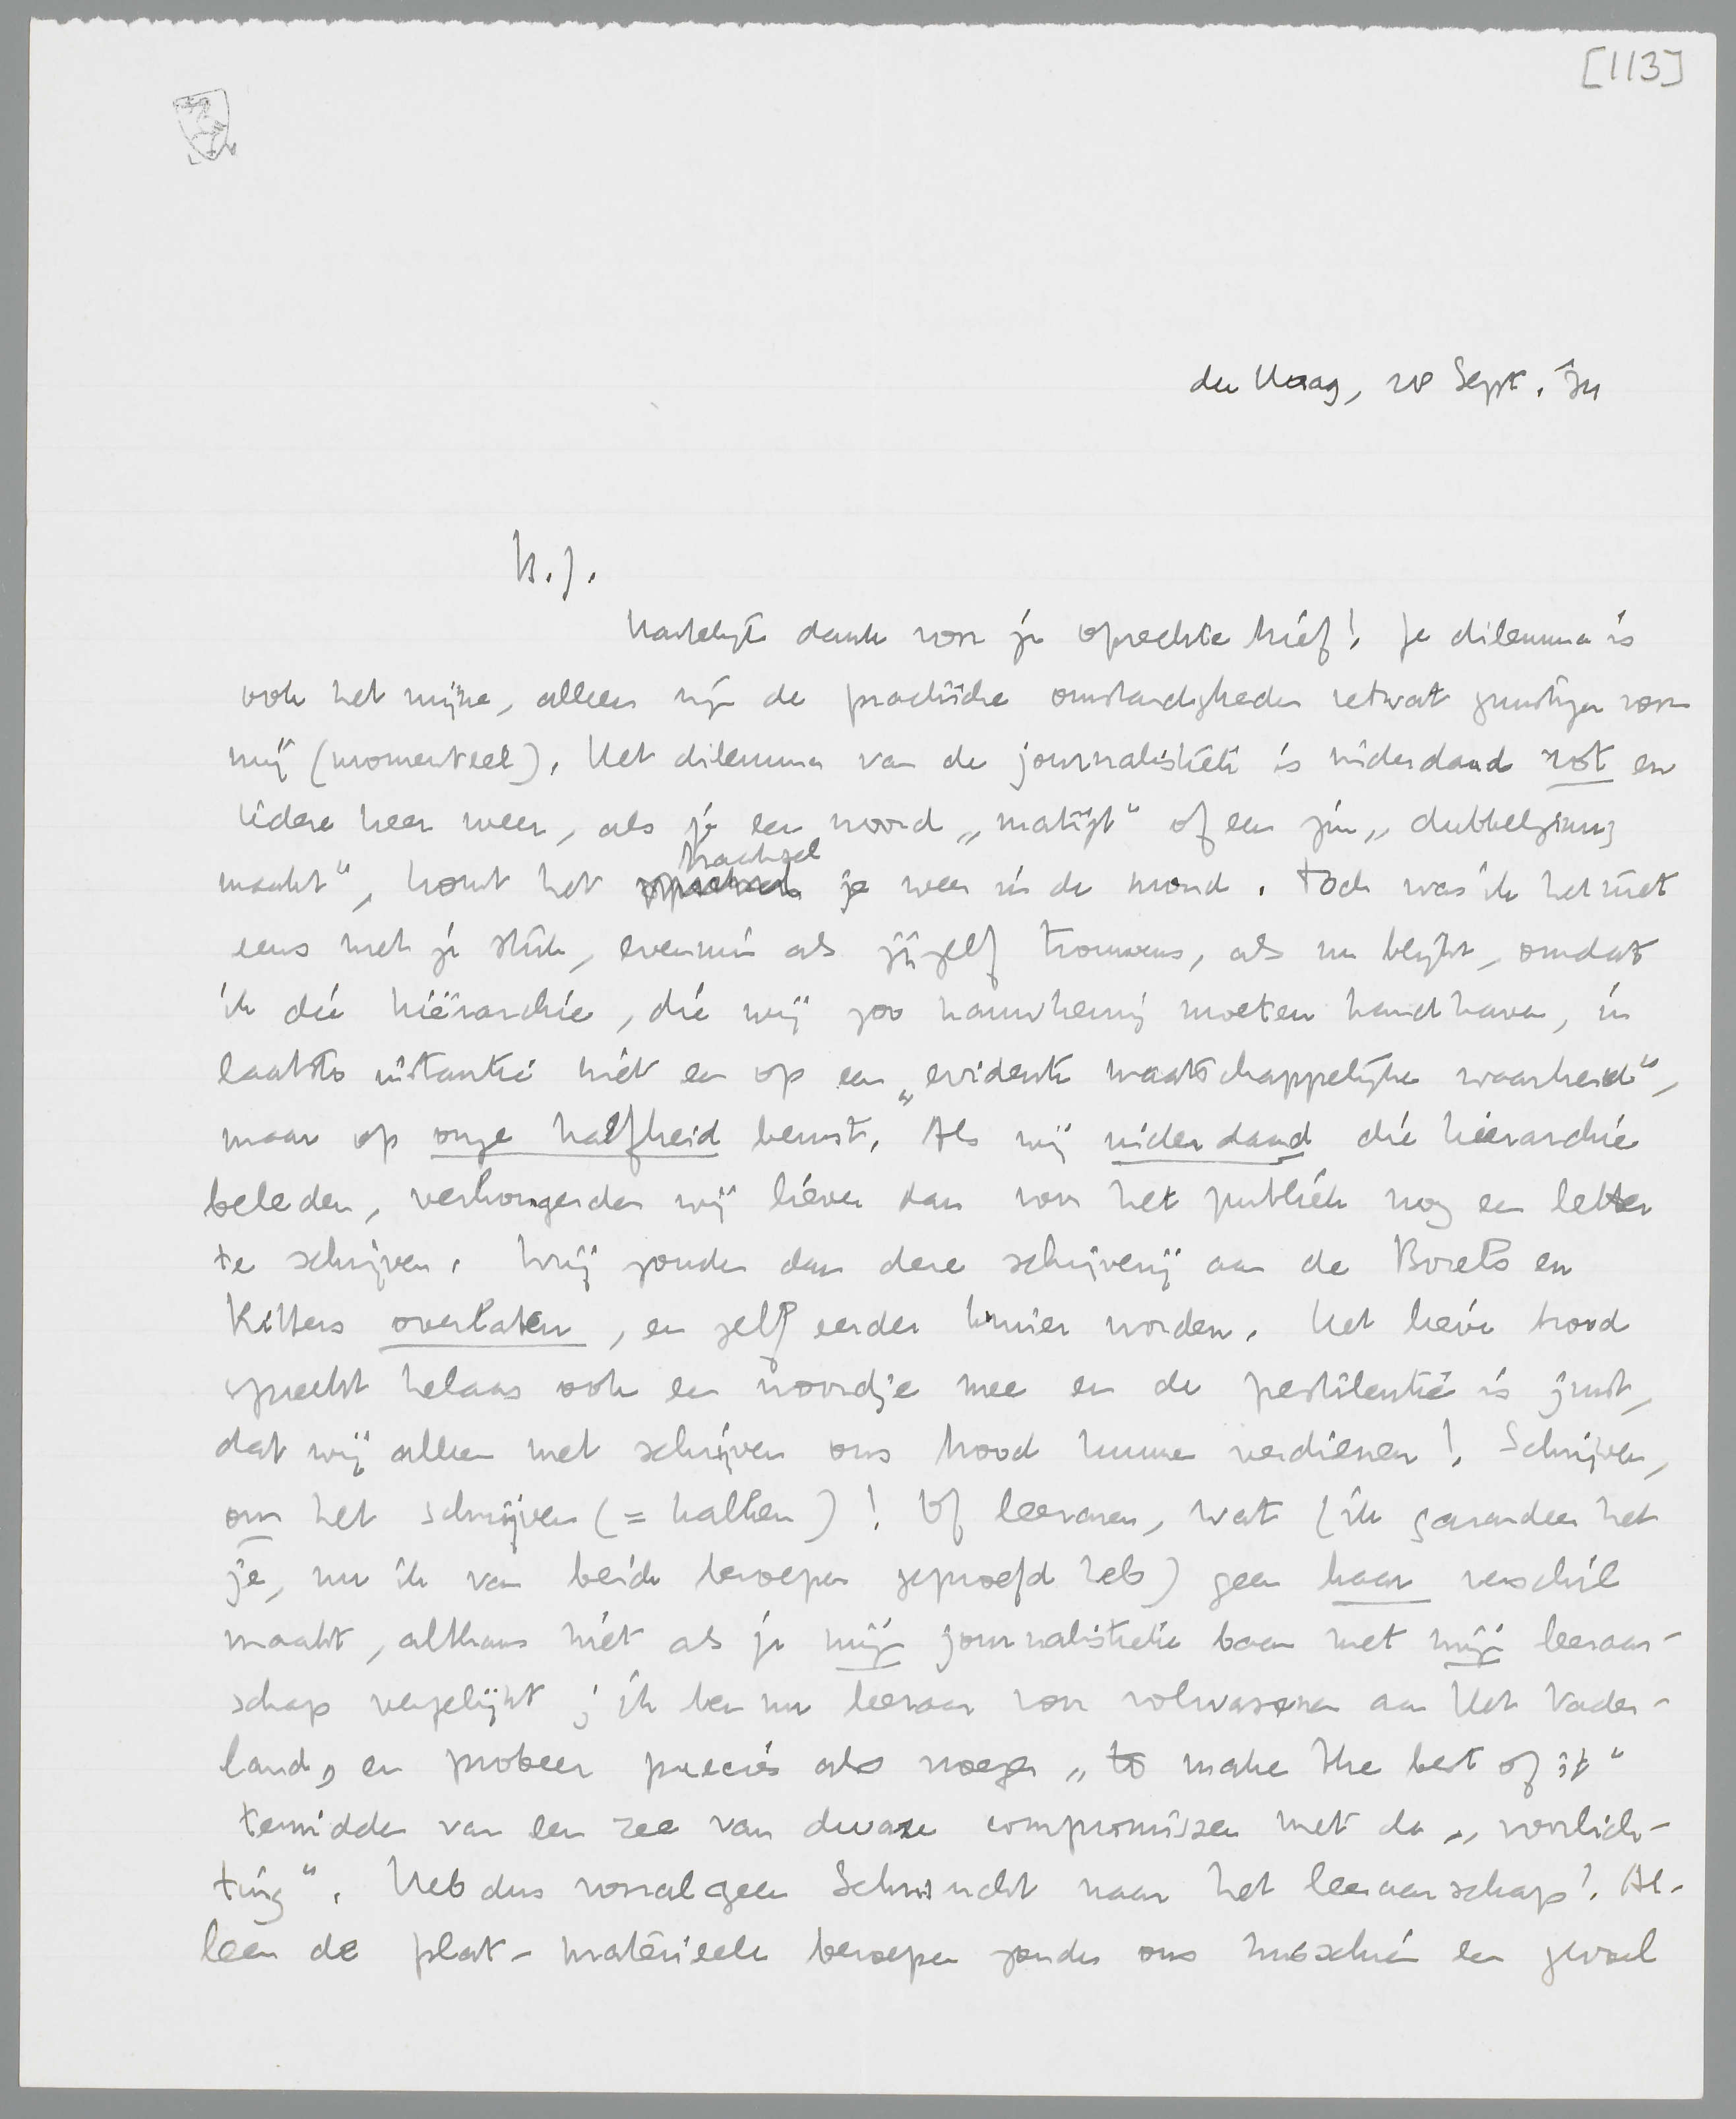 [113]
den Haag, 28 Sept. '34
B.J.
Hartelijk dank voor je oprechte brief! Je dilemma is
ook het mijne, alleen zijn de practische omstandigheden ietwat gunstiger voor
mij (momenteel). Het dilemma van de journalistiek is inderdaad rot en
iedere keer weer, als je een woord „matigt" of een zin „dubbelzinnig
maakt", komt het braaksel je weer in de mond. Toch was ik het niet
eens met je stuk, evenmin als jijzelf trouwens, als nu blijkt, omdat
ik die hiërarchie, die wij zoo krampachtig moeten handhaven, in
laatste instantie niet en op een „evidente maatschappelijke waarheid",
maar op onze halfheid berust. Als wij inderdaad die hiërarchie
beleden, verhongerden wij liever dan voor het publiek nog een letter
te schrijven. Wij zouden dan deze schrijverij aan de Borels en
Ritters overlaten, en zelf eerder kruier worden. Het lieve brood
spreekt helaas ook een woordje mee en de pestilentie is juist,
dat wij alleen met schrijven ons brood kunnen verdienen! Schrijven,
om het schrijven (= kalken)! Of leeraren, wat (ik garandeer het
je, nu ik van beide beroepen geproefd heb) geen haar verschil
maakt, althans niet als je mijn journalistieke baan met mijn leeraar-
schap vergelijkt; ik ben nu leeraar voor volwassenen aan Het Vader-
land, en probeer precies als vroeger „to make the best of it"
temidden van een zee van dwaze compromissen met de „voorlich-
ting". Heb dus vooral geen Sehnsucht naar het leeraarschap! Al-
leen de plat-materieele beroepen zouden ons misschien een gevoel